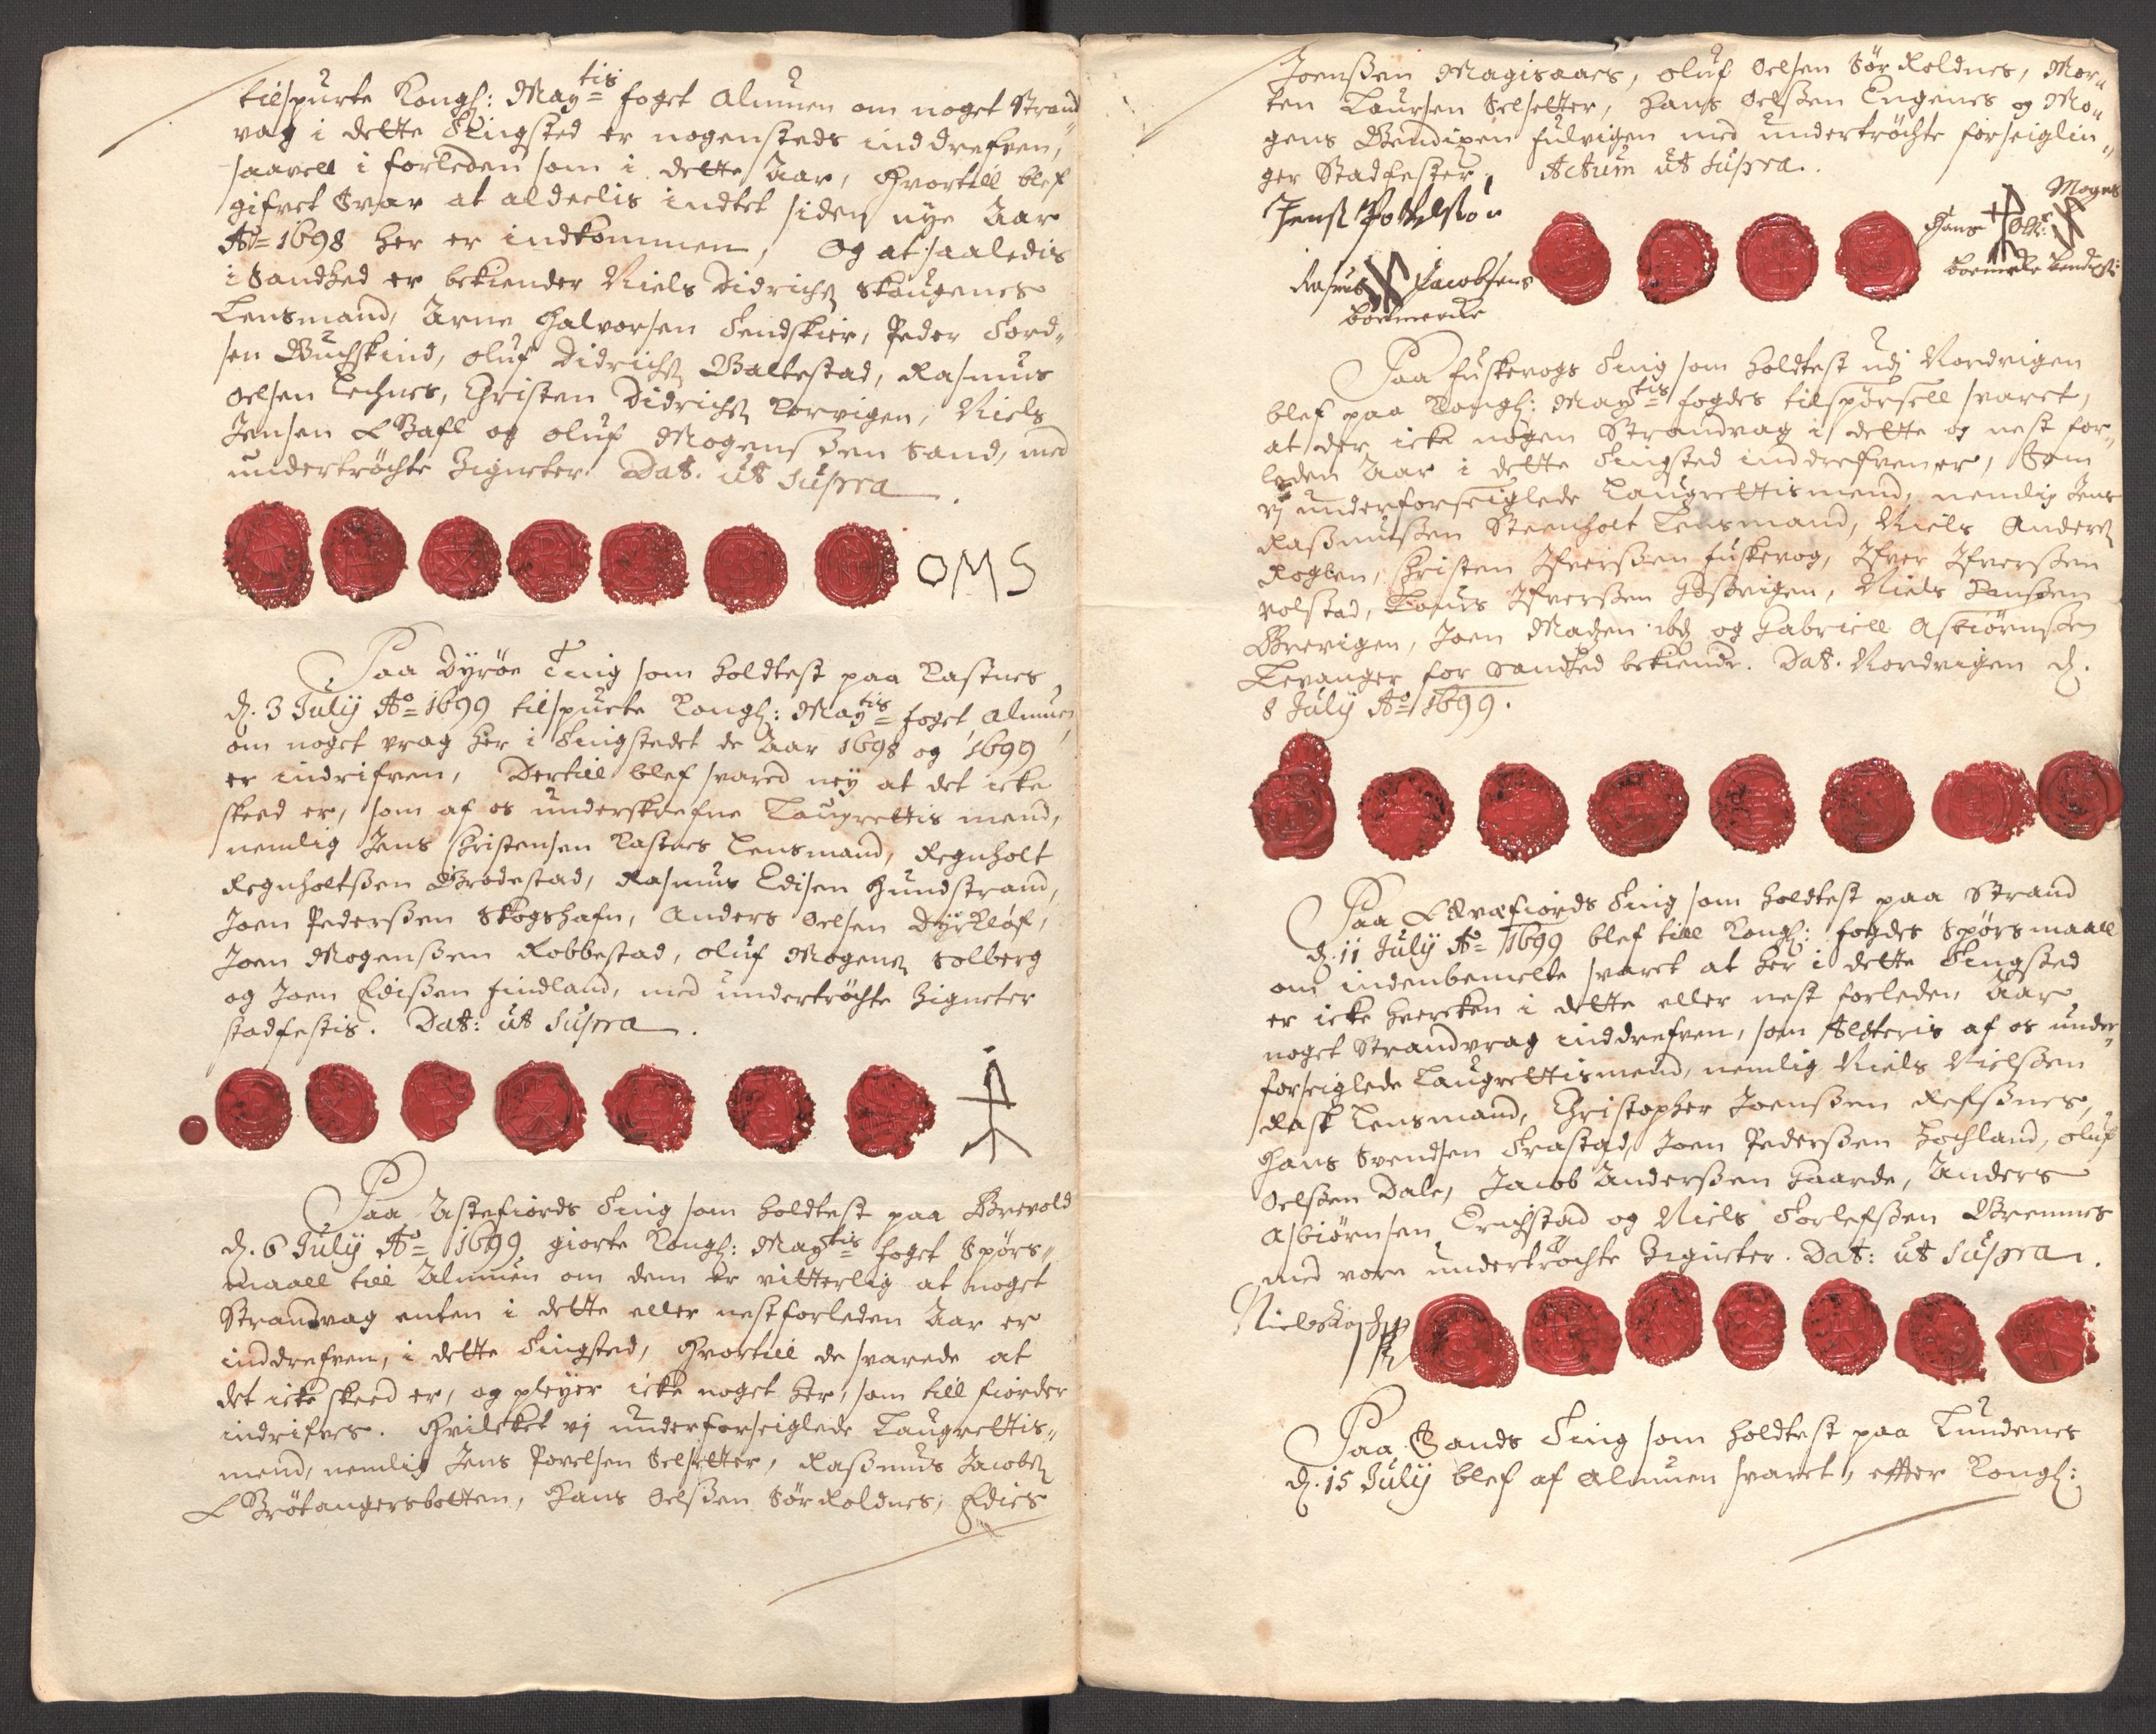 tilspurte Kongl: Maytis foget Almuen om noget Strand
vrag i dette Tingsted er nogensteds inddrefven,
saavell i forleden som i dette Aar, hvortill blef
gifvet Svar at aldeelis indtet siden nye Aar
Ao 1698 her er indkommen, Og at saaledis
i Sandhed er bekiender Niels Didrichs Skougenes
Lensmand, Arne Halvorsen Tendskier, Peder Tord„
sen Buchskind, oluf Didrichs Baltestad, Rasmus
Oelsen Lechnes, Christen Didrichs Korvigen, Niels
Jensen og oluf Mogensen Sand, med
undertröchte Zigneter. Dat. ut supra.
OMS
Paa Dyröe Ting som holdtest paa Kastnes
d. 3 July Ao 1699 tilspurte Kongl: Maytis foget Almuen
om noget vrag her i Tingstedet de Aar 1698 og 1699
er indrifven, Dertill blef svared ney at det icke
skeed er, som af os underskrefne Laugrettis mend,
nemlig Jens Christensen Kastnes Lensmand, Regnholt
Regnholtsen Brödestad, Rasmus Edisen Hundstrand,
Joen Pedersen Skogshafn, Anders Oelsen Dyrkløf,
Joen Mogensen Robbestad, oluf Mogens Solberg
og Joen Edisen Findland, med undertröchte Zigneter
stadfestis. Dat: ut supra.
Paa Astefiords Ting som holdtest paa Grevold
d. 6 July Ao 1699 giorte Kongl: Maytis foget Spörs„
maall till Almuen om dem er vitterlig at noget
Strandvag enten i dette eller nestforleden Aar er
inddrefven, i dette Tingsted, hvortill de svarede at
det icke skeed er, og pleyer icke noget her, som till fiorder
indrifves. Hvilcket vi underforseiglede Laugrettis„
mend, nemlig Jens Povelsen Selsetter, Rasmus Jacobs
Brötangersbotten, Hans Oelsen Sör Roldnes, Edies
Joensen Magisaars, oluf Oelsen Sör Roldnes, Mor„
ten Laursen Selsetter, Hans Oelsen Engenes og Mo„
gens Bendixen Fulvigen med undertröchte forseiglin„
ger Stadfester. Actum ut supra.
Jens Povelsön
Rasmus Jacobsens
boemercke
Hans Ols:
Mogens
boemercke Bendixs:
Paa Fuskevogs Ting som holdtest udj Nordvigen
blef paa Kongl: Maytis fogdes tilspörsell svaret,
at der icke nogen Strandvag i dette og nest for„
leden Aar i dette Tingsted inddrefven er, Som
vj underforseiglede Laugrettismend, nemlig Jens
Rasmusen Steenholt Lensmand, Niels Anders
Roglen, Christen Ifversen Fuskevog, Ifver Ifversen
Volstad, Laurs Ifversen Gosvigen, Niels Hansen
Brevigen, Joen Madzen ibd og Gabriell Asbiörnsen
Levanger for Sandhed bekiende. Dat. Nordvigen d.
8 July Ao 1699.
Paa Kvæfiords Ting som holdtest paa Strand
d. 11 July Ao 1699 blef till Kongl: fogdes Spörsmaall
om indenbemelte svaret at her i dette Tingsted
er icke hvercken i dette eller nest forleden Aar
noget Strandvrag inddrefven, som Atesteris af os under„
forseiglede Laugrettismend, nemlig Niels Nielsen
Rask Lensmand, Christopher Joensen Refsnes,
Hans Svendsen Trastad, Joen Pedersen Hochland, oluf
Oelsen Dale, Jacob Andersen Haarde, Anders
Asbiörnsen Erichstad og Niels Torlefsen Bremnes
med vore undertröchte Zigneter. Dat: ut supra.
Niels Rasch
Paa Sands Ting som holdtest paa Tundenes
d. 15 July blef af Almuen svaret, effter Kongl: